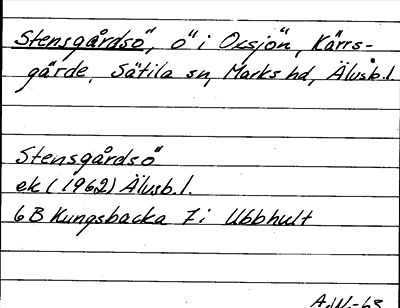 Stensgårdsö, ö i Oxsjön, Kärrs-
gärde, Sätila sn, Marks hd, Älvsb.l
Stensgårdsö
ek (1962) Älvsb.l.
6 B Kungsbacka 7 i Ubbhult
A.W.-63